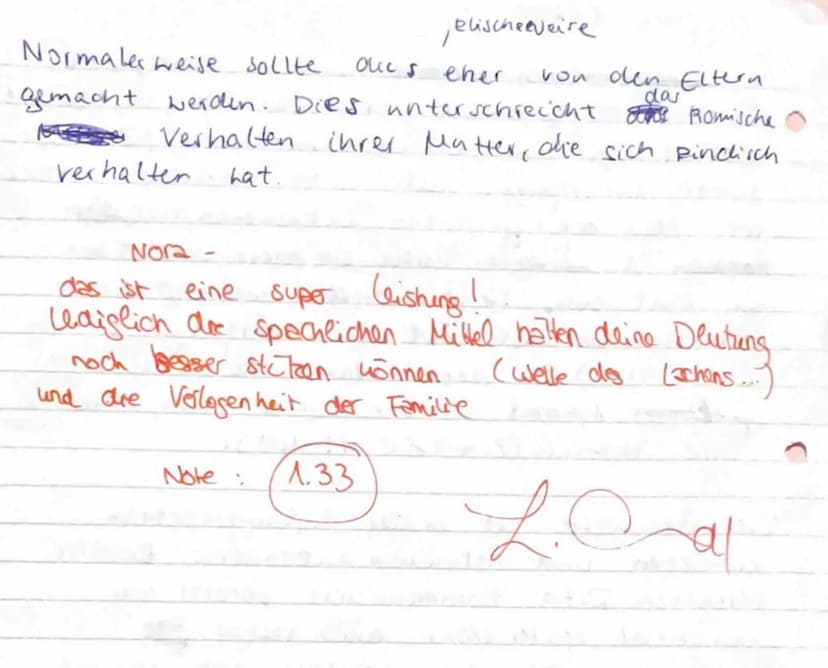 Normalerweise sollte dies eher von den Eltern
gemacht werden. Dies unterschreicht das komische
Verhalten ihrer Mutter, die sich kindisch
verhalten hat.
Nora -
das ist eine super Leistung!
Lediglich die sprachlichen Mittel hätten deine Deutung
noch besser stützen können (Welle des Lachens...)
und die Verlogenheit der Familie
Note: 1.33